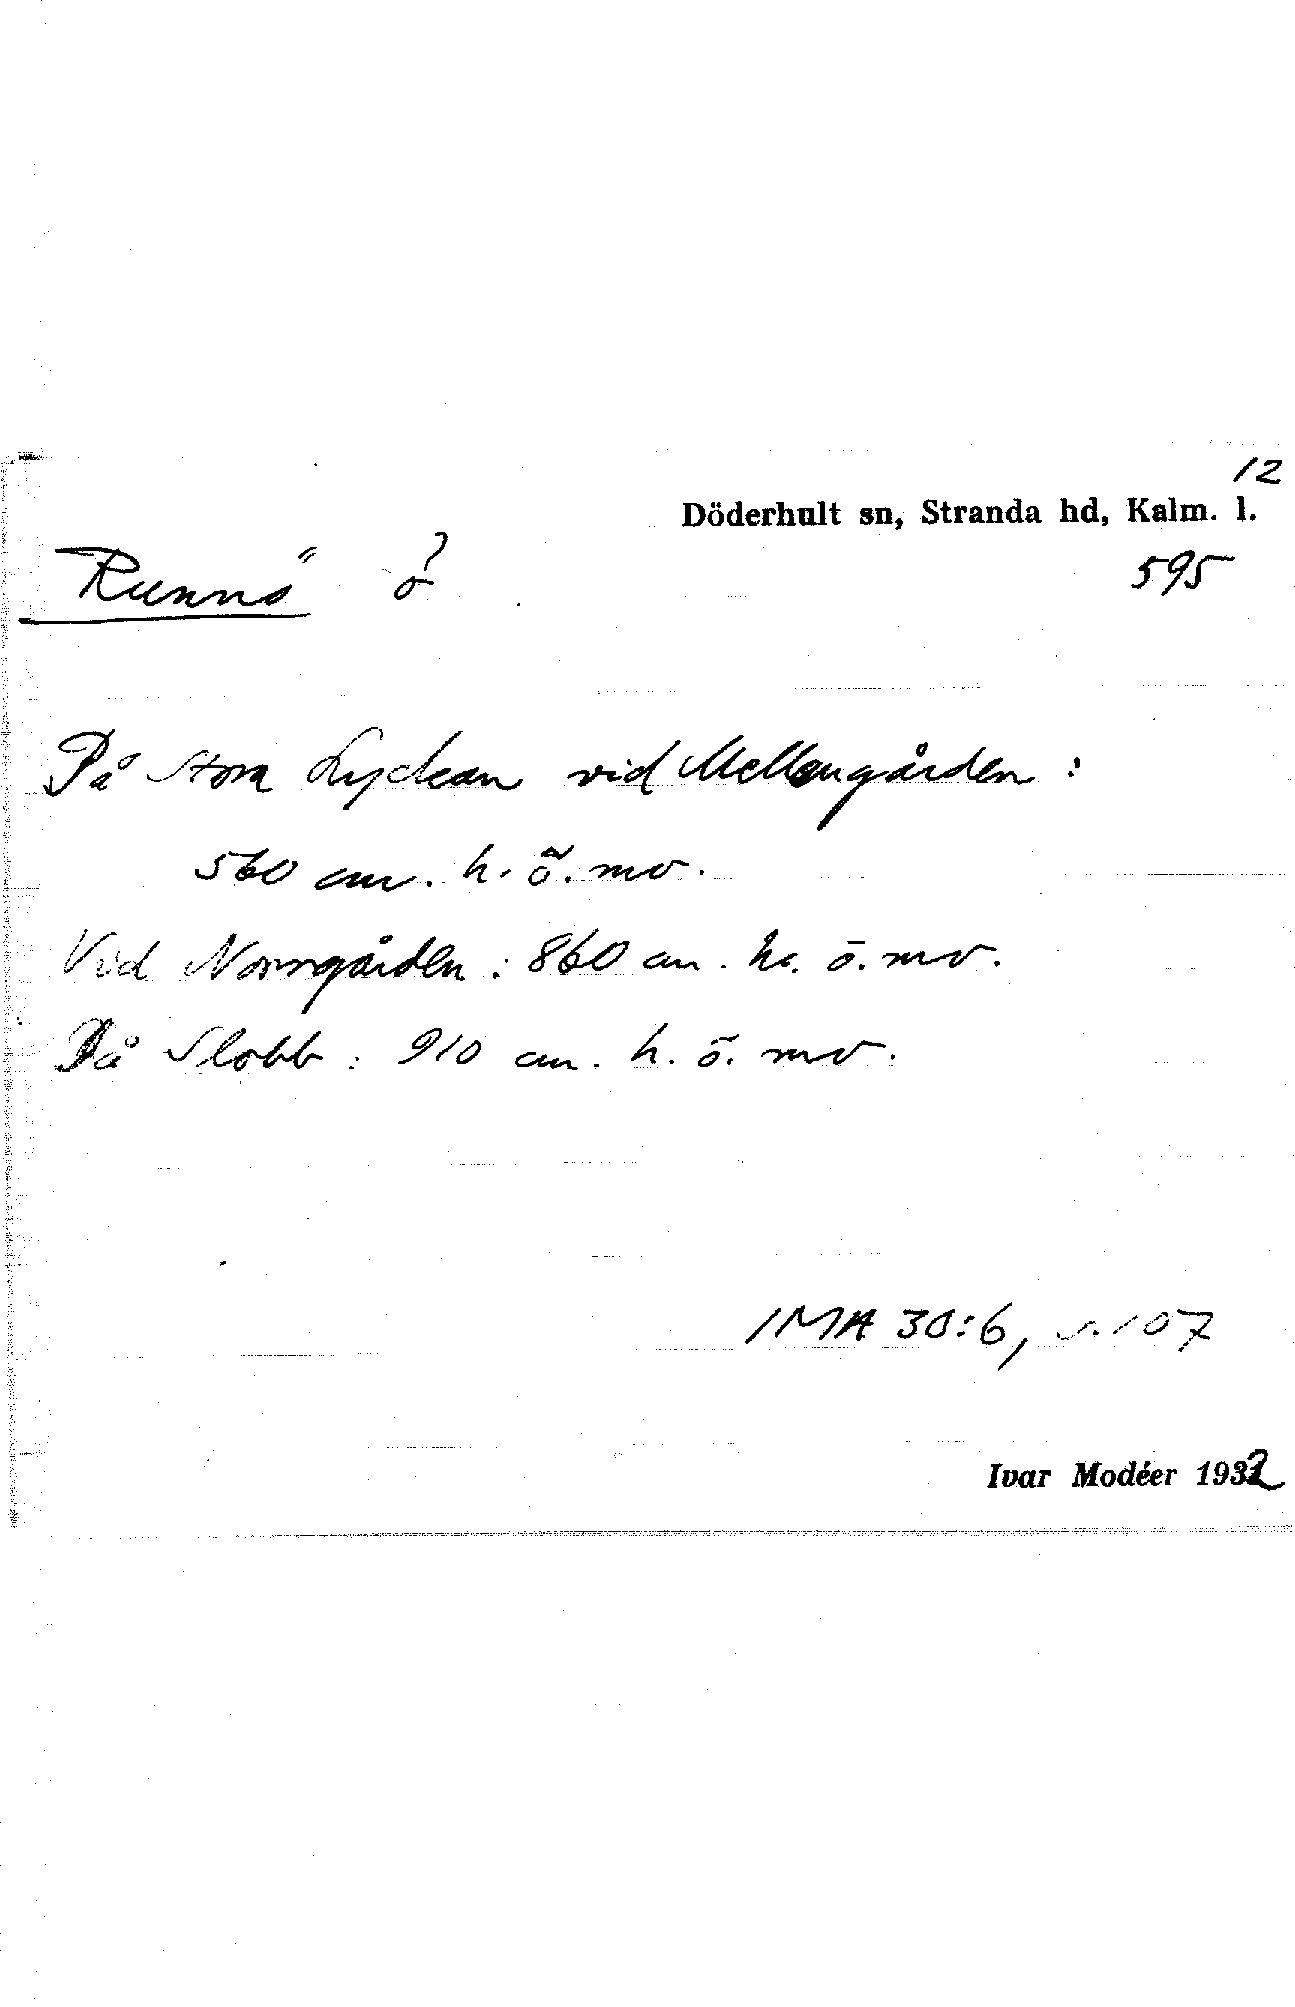 12
Döderhult sn, Stranda hd, Kalm. l.
Runnö ö
595
På Stora Lyckan vid Mellangården:
560 cm. h. ö. mv.
Vid Norrgården: 860 cm. h. ö. mv.
På Slobb: 910 cm. h. ö. mv.
IMA 30:6, s. 107
Ivar Modéer 1932